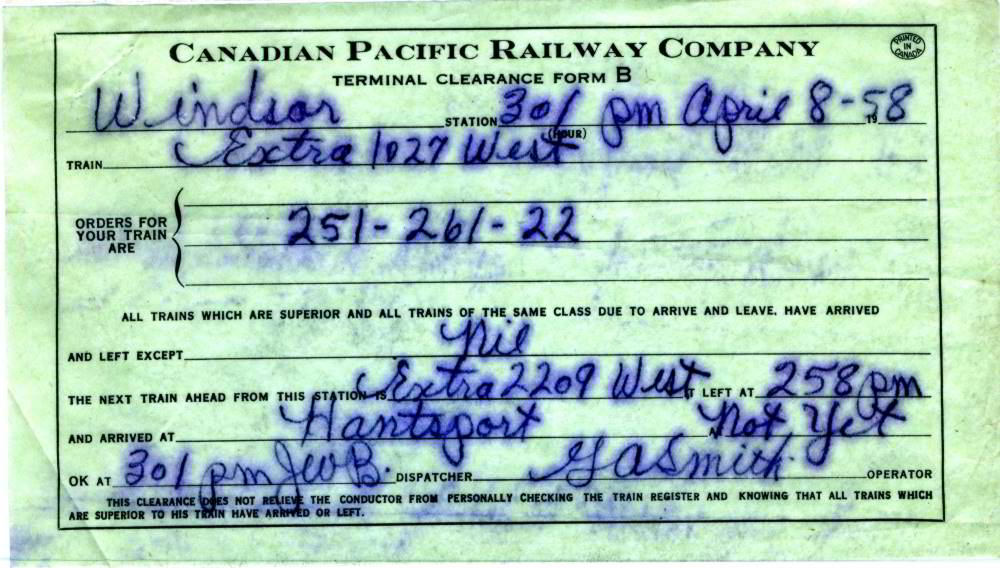 CANADIAN PACIFIC RAILWAY COMPANY
PRINTED IN CANADA
TERMINAL CLEARANCE FORM B
Windsor STATION 301 pm April 8-58
(HOUR) 19
TRAIN Extra 1027 West
ORDERS FOR YOUR TRAIN ARE 251-261-22
ALL TRAINS WHICH ARE SUPERIOR AND ALL TRAINS OF THE SAME CLASS DUE TO ARRIVE AND LEAVE, HAVE ARRIVED
AND LEFT EXCEPT Nil
THE NEXT TRAIN AHEAD FROM THIS STATION IS Extra 2209 West IT LEFT AT 258 pm
AND ARRIVED AT Hantsport Not Yet
OK AT 301 pm JWB. DISPATCHER G A Smith OPERATOR
THIS CLEARANCE DOES NOT RELIEVE THE CONDUCTOR FROM PERSONALLY CHECKING THE TRAIN REGISTER AND KNOWING THAT ALL TRAINS WHICH
ARE SUPERIOR TO HIS TRAIN HAVE ARRIVED OR LEFT.